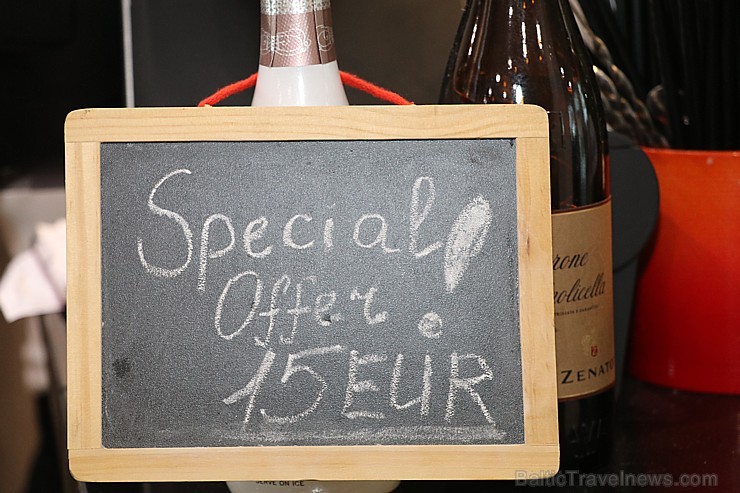 Special
Offer !
15 EUR
rone
olicella
ZENAT
SERVE ON ICE
BalticTravelnews.com